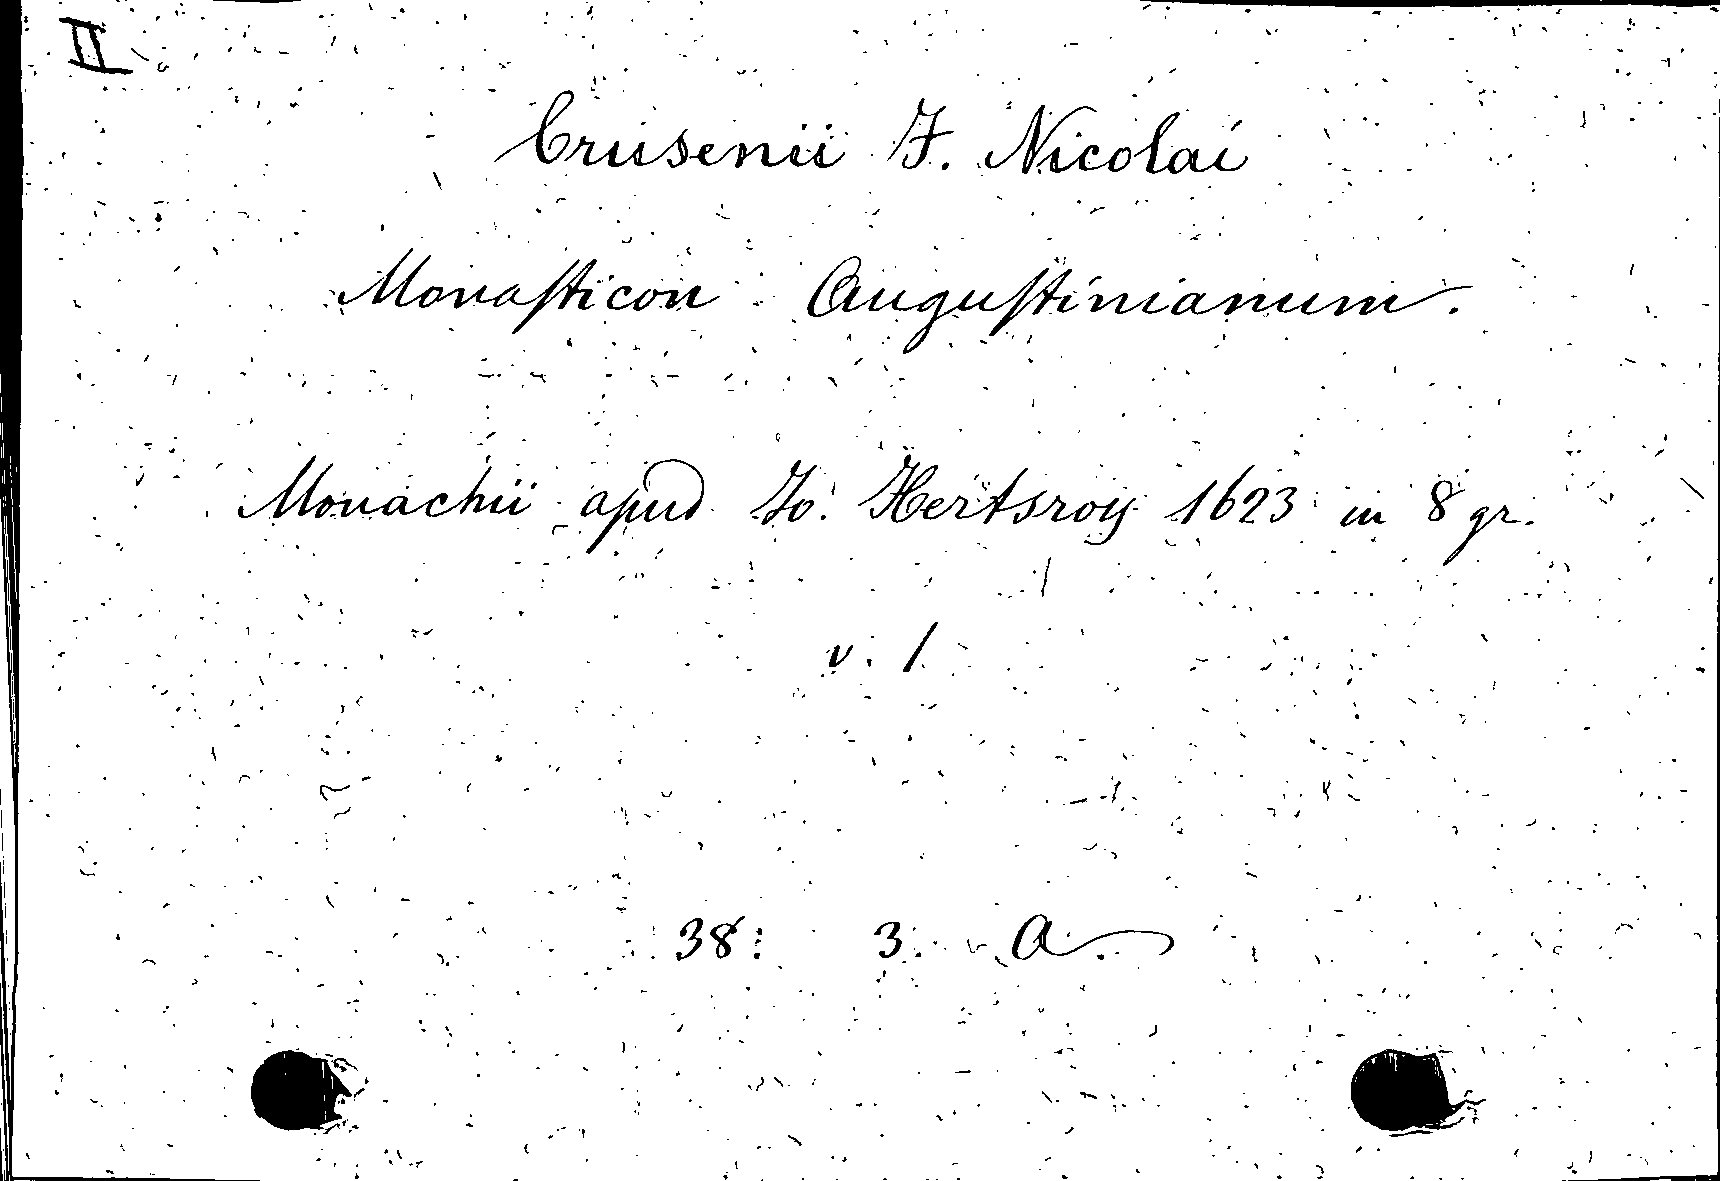 II
Crusenii F. Nicolai
Monasticon Augustinianum.
Monachii apud Jo. Hertsroy 1623 in 8 gr.
v. 1
38. 3. A.